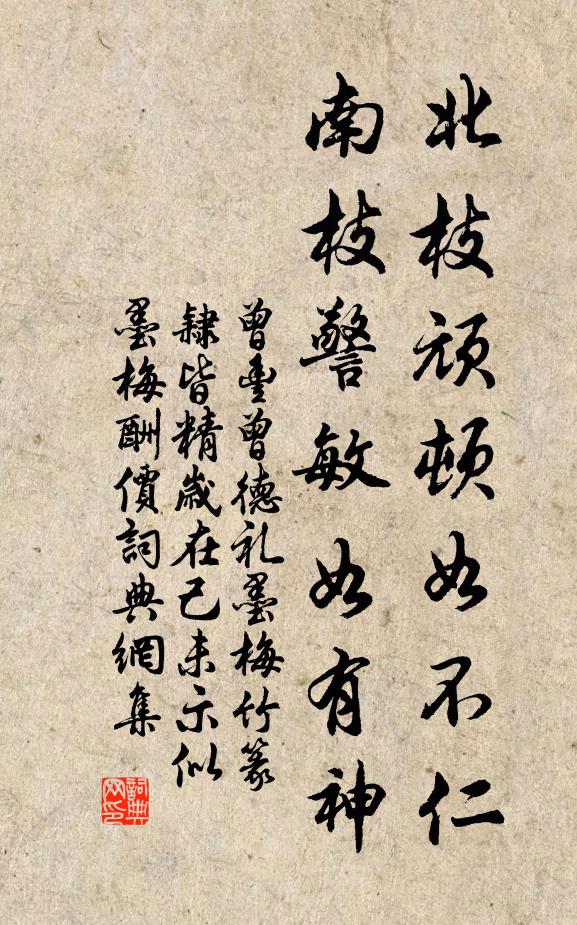 北枝頑頓如不仁
南枝警敏如有神
曾豐曾德礼墨梅竹篆
隸皆精歲在己未示似
墨梅酬價詞典網集
詞典网印